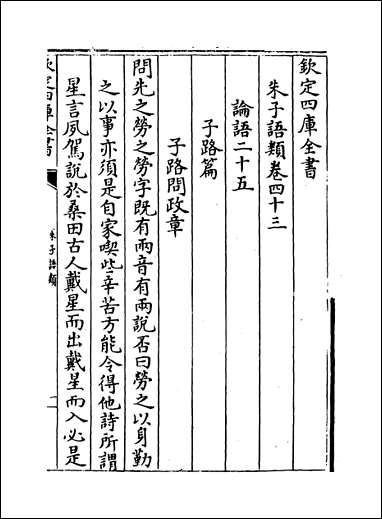 欽定四庫全書
朱子語類卷四十三
論語二十五
子路篇
子路問政章
問先之勞之勞字既有兩音有兩說否曰勞之以身勤
之以事亦須是自家喫些辛苦方能令得他詩所謂
星言夙駕說於桑田古人戴星而出戴星而入必是
欽定四庫全書
朱子語類